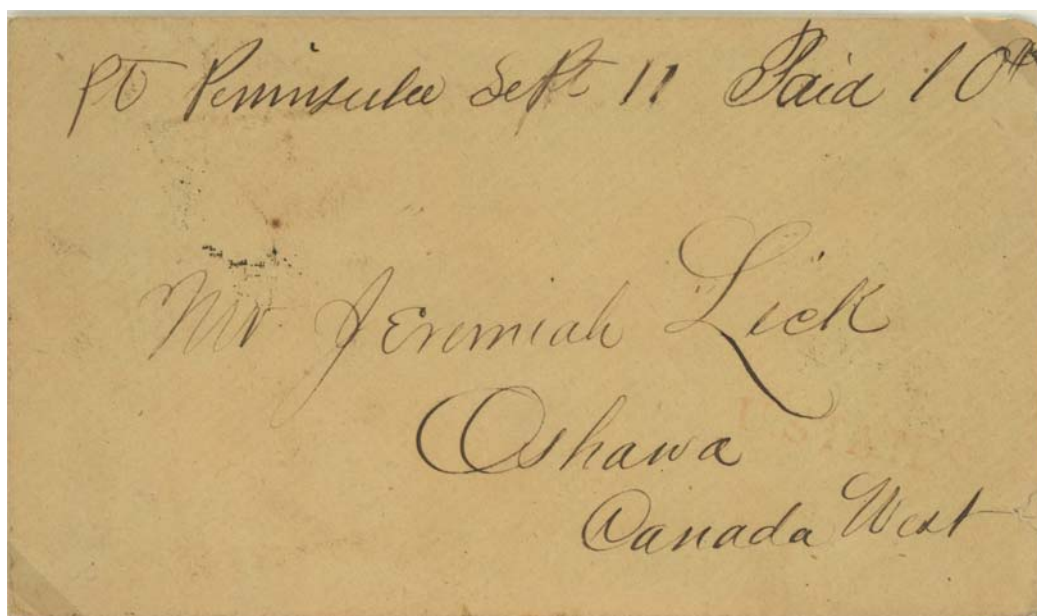 Pt Peninsula Sept 11 Paid 10
Mr Jeremiah Lick
Oshawa
Canada West